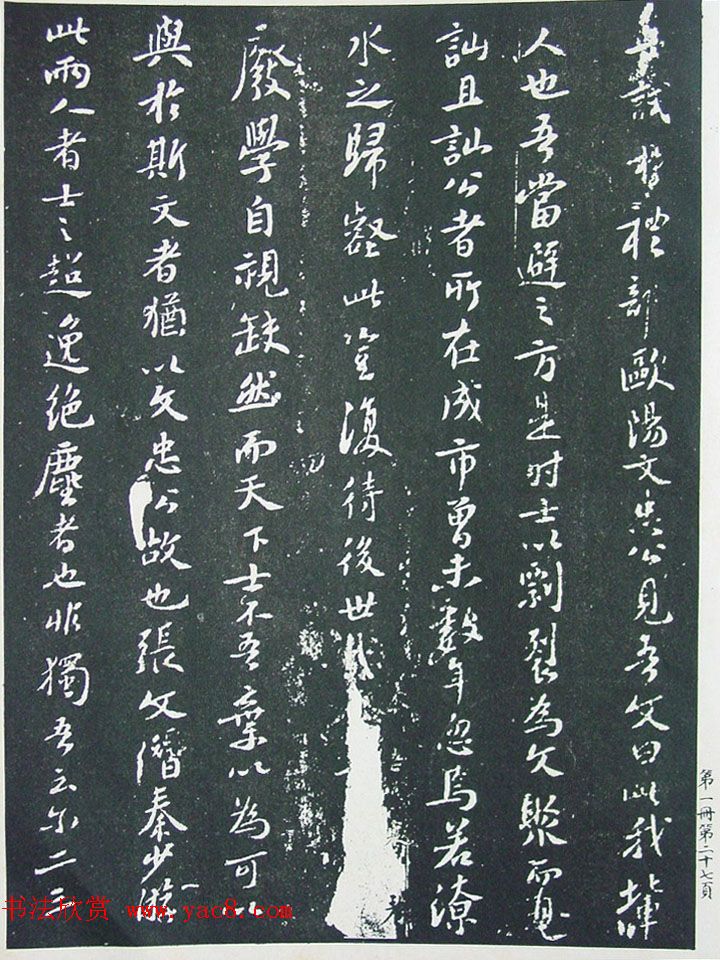 試於禮部歐陽文忠公見吾文曰此我輩
人也吾當避之方是时士以剽裂為文聚而見
訕且訕公者所在成市曾未數年忽焉若潦
水之歸壑此豈復待後世哉
廢學自視缺然而天下士不吾棄以為可以
與於斯文者猶以文忠公故也張文潛秦少游
此兩人者士之超逸絕塵者也非獨吾云尔二三
第一冊第二十七頁
书法欣赏 www.yac8.com